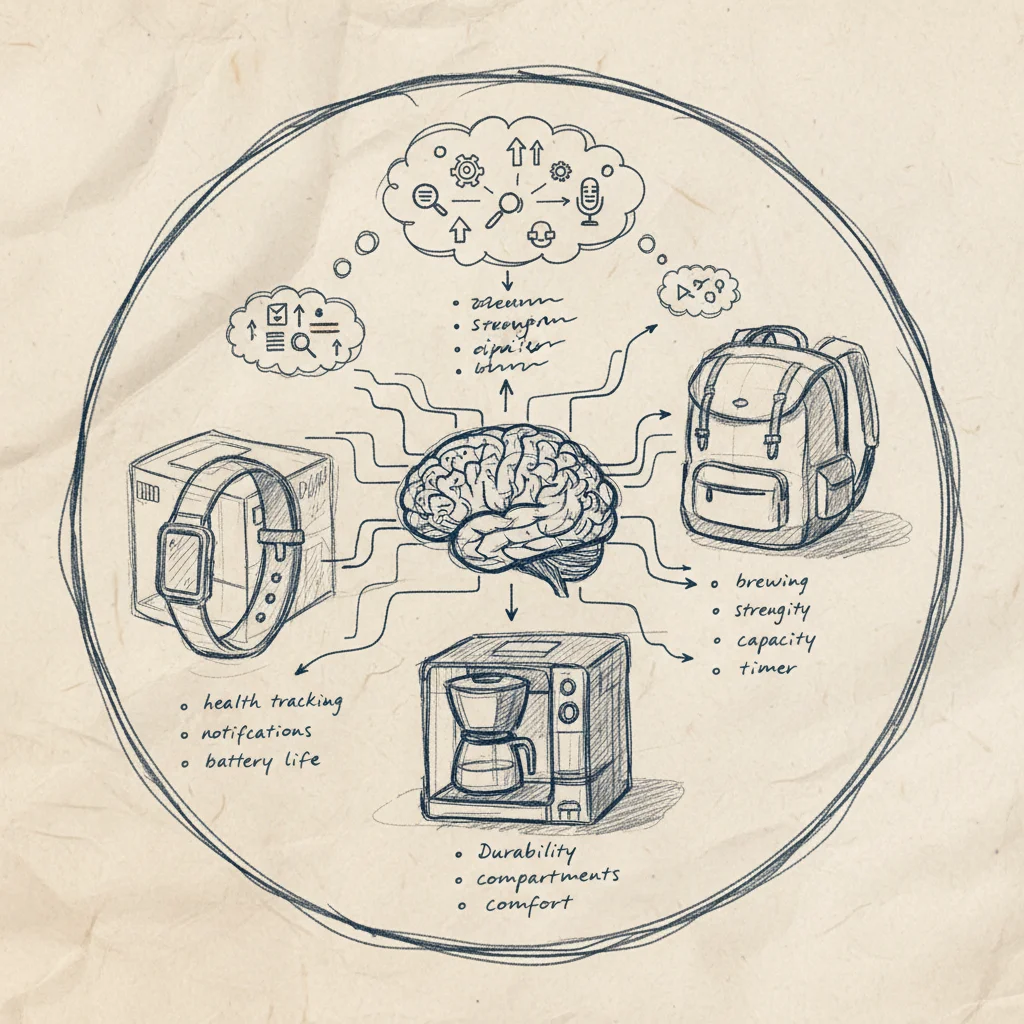 brewing
strengity
capacity
timer
health tracking
notifcations
battery life
Durability
compartments
comfort